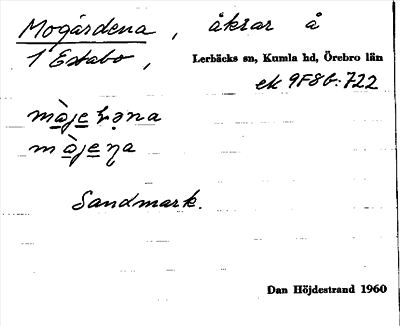 Mogårdena, åkrar å
1 Estabo, Lerbäcks sn, Kumla hd, Örebro län
ek 9F8b:722
Sandmark.
Dan Höjdestrand 1960